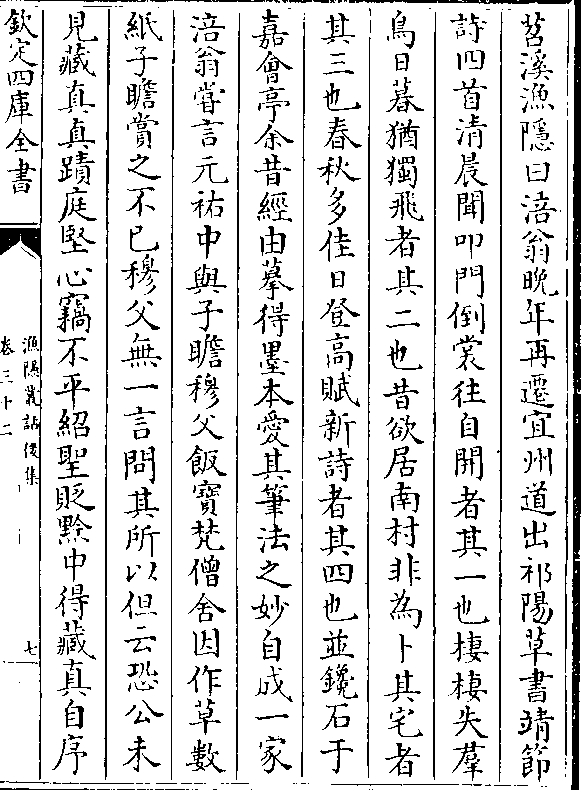 苕溪漁隱曰涪翁晩年再遷宜州道出祁陽草書靖節
詩四首清晨聞叩門倒裳往自開者其一也棲棲失羣
鳥日暮猶獨飛者其二也昔欲居南村非為卜其宅者
其三也春秋多佳日登高賦新詩者其四也並鑱石于
嘉會亭余昔經由摹得墨本愛其筆法之妙自成一家
涪翁嘗言元祐中與子瞻穆父飯寶梵僧舍因作草數
紙子瞻賞之不已穆父無一言問其所以但云恐公未
見藏真真蹟庭堅心竊不平紹聖貶黔中得藏真自序
欽定四庫全書
漁隱叢話後集
卷三十二
七